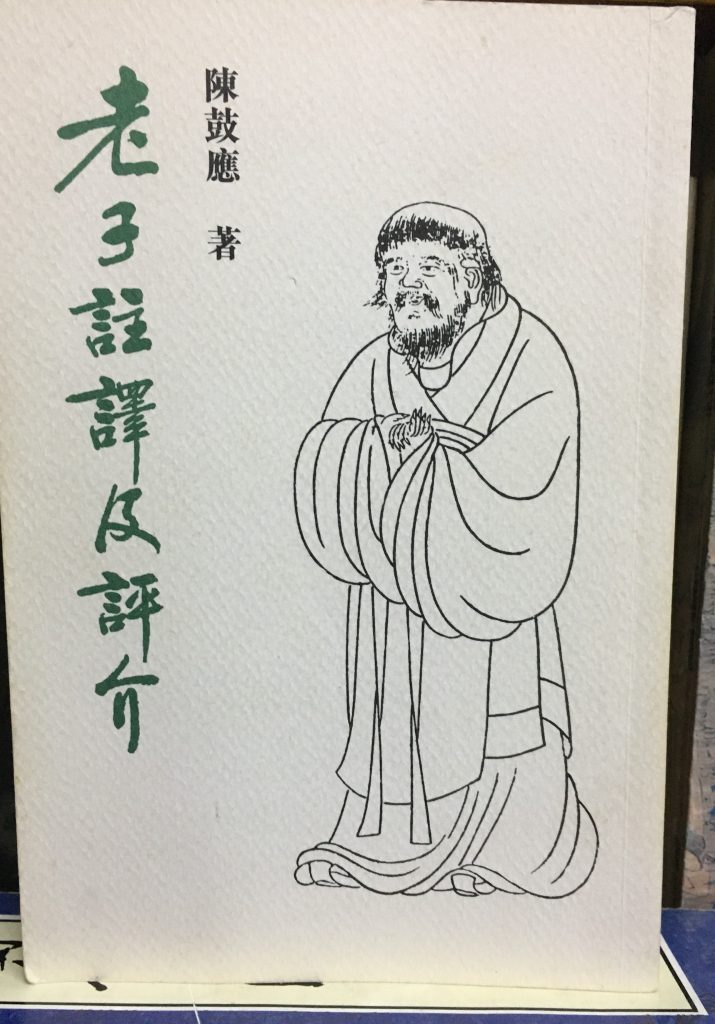 陳鼓應 著
老子註譯及評介